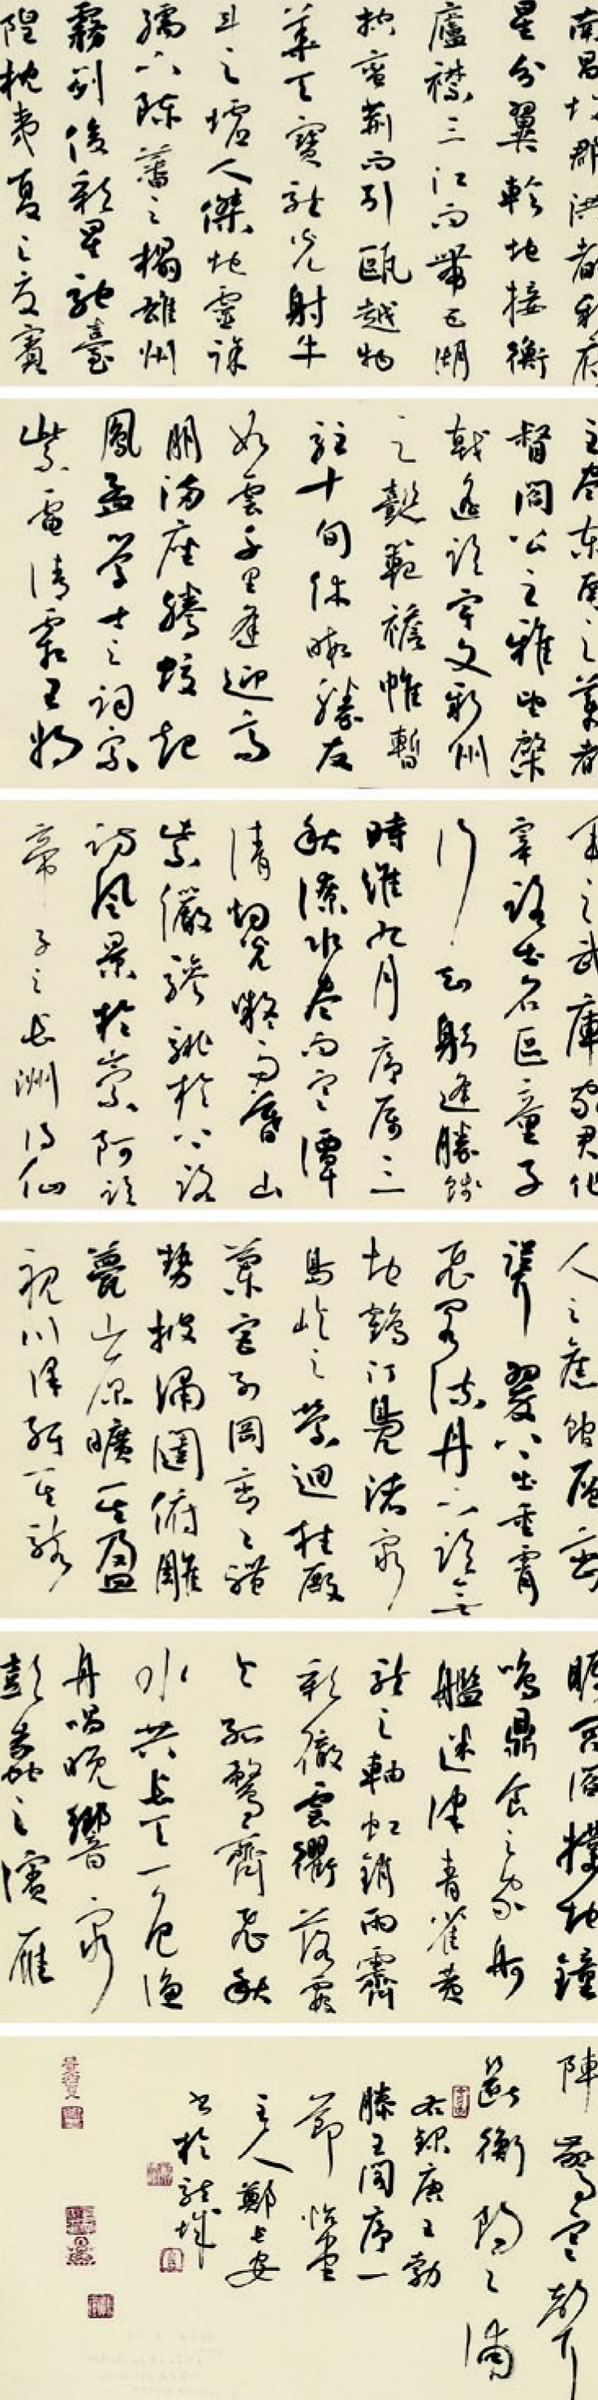 南昌故郡洪都新府
星分翼軫地接衡
廬襟三江而帶五湖
控蠻荊而引甌越物
華天寶龍光射牛
斗之墟人傑地靈徐
孺下陳蕃之榻雄州
霧列俊彩星馳臺
隍枕夷夏之交賓
主盡東南之美都
督閻公之雅望棨
戟遙臨宇文新州
之懿範襜帷暫
駐十旬休暇勝友
如雲千里逢迎高
朋滿座騰蛟起
鳳孟學士之詞宗
紫電清霜王將
軍之武庫家君作
宰路出名區童子
何知躬逢勝餞
時維九月序屬三
秋潦水盡而寒潭
清煙光凝而暮山
紫儼驂騑於上路
訪風景於崇阿臨
帝子之長洲得仙
人之舊館層巒
聳翠上出重霄
飛閣流丹下臨無
地鶴汀鳧渚窮
島嶼之縈迴桂殿
蘭宮列岡巒之體
勢披繡闥俯雕
甍山原曠其盈
視川澤紆其駭
矚閭閻撲地鐘
鳴鼎食之家舸
艦迷津青雀黃
龍之軸虹銷雨霽
彩徹雲衢落霞
與孤鶩齊飛秋
水共長天一色漁
舟唱晚響窮
彭蠡之濱雁
陣驚寒聲
斷衡陽之浦
右錄唐王勃
滕王閣序一
節怡堂
主人鄭長安
書於龍城